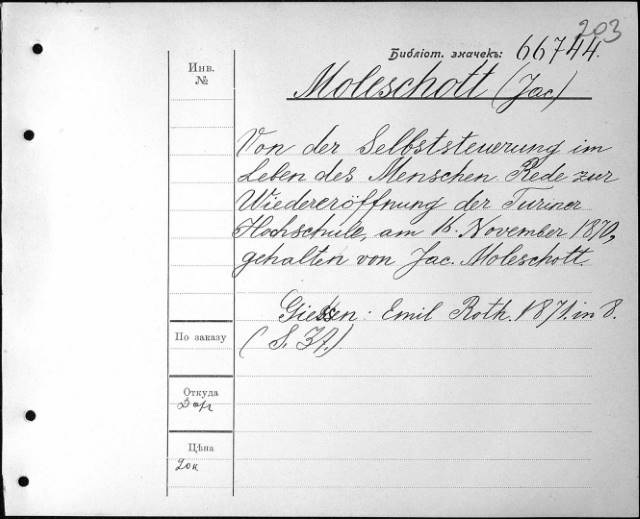 203
Библіот. значекъ: 66744.
Инв. №
Moleschott (Jac)
Von der Selbststeuerung im
Leben des Menschen Rede zur
Wiedereröffnung der Turiner
Hochschule, am 16. November 1870,
gehalten von Jac. Moleschott.
Giessen: Emil Roth. 1871. in 8.
По заказу
(S. 31.)
Откуда
Цѣна
20к